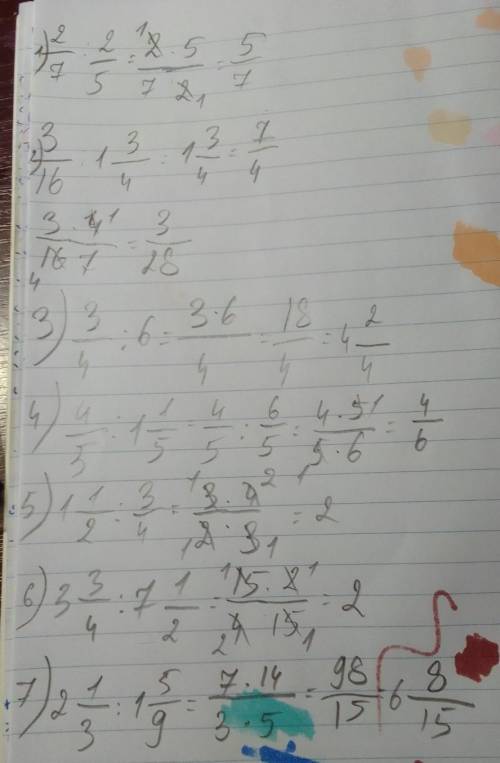 1) 2/7 : 2/5 = 2 · 5 / 7 2 = 5/7
2) 3/16 : 1 3/4 = 1 3/4 = 7/4
3 · 4 / 16 7 = 3/28
3) 3/4 : 6 = 3·6/4 = 18/4 = 4 2/4
4) 4/5 : 1 1/5 = 4/5 : 6/5 = 4 · 5 / 5 · 6 = 4/6
5) 1 1/2 : 3/4 = 3 · 4 / 2 · 3 = 2
6) 3 3/4 : 7 1/2 = 15 · 2 / 4 15 = 2
7) 2 1/3 : 1 5/9 = 7 · 14 / 3 · 5 = 98/15 6 8/15